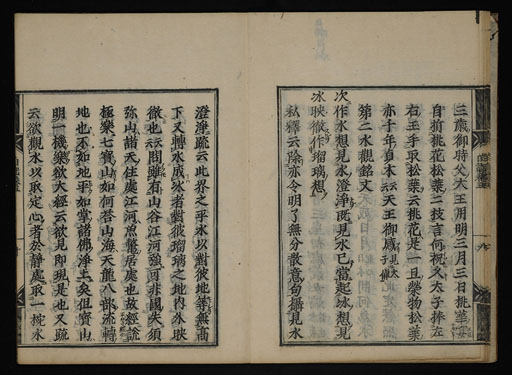 三歲御時父大王用明三月三日桃華宴
自折桃花松葉二枝言何祝又太子捧左
右王手取松葉云桃花是一旦榮物松葉
亦千年貞木云云天王御感見太子傳
第二水觀銘文
次作水想見水澄淨既見水已當起冰想見
冰映徹作瑠璃想
私釋云除亦令明了無分散意句攝見水
澄淨疏云此界之平水以對彼地等無高
下又轉水成冰者對彼瑠璃之地內外映
徹也云云問雖有山谷江河強可非國失須
弥山諸天住處江河魚鱉居處也故經說
極樂七寶山如何答山海天龍八部流轉
地也不如地平如掌諸佛淨土矣但寶山
明一機樂欲大經云欲見即現是也又疏
云欲觀水以取定心者於靜處取一椀水